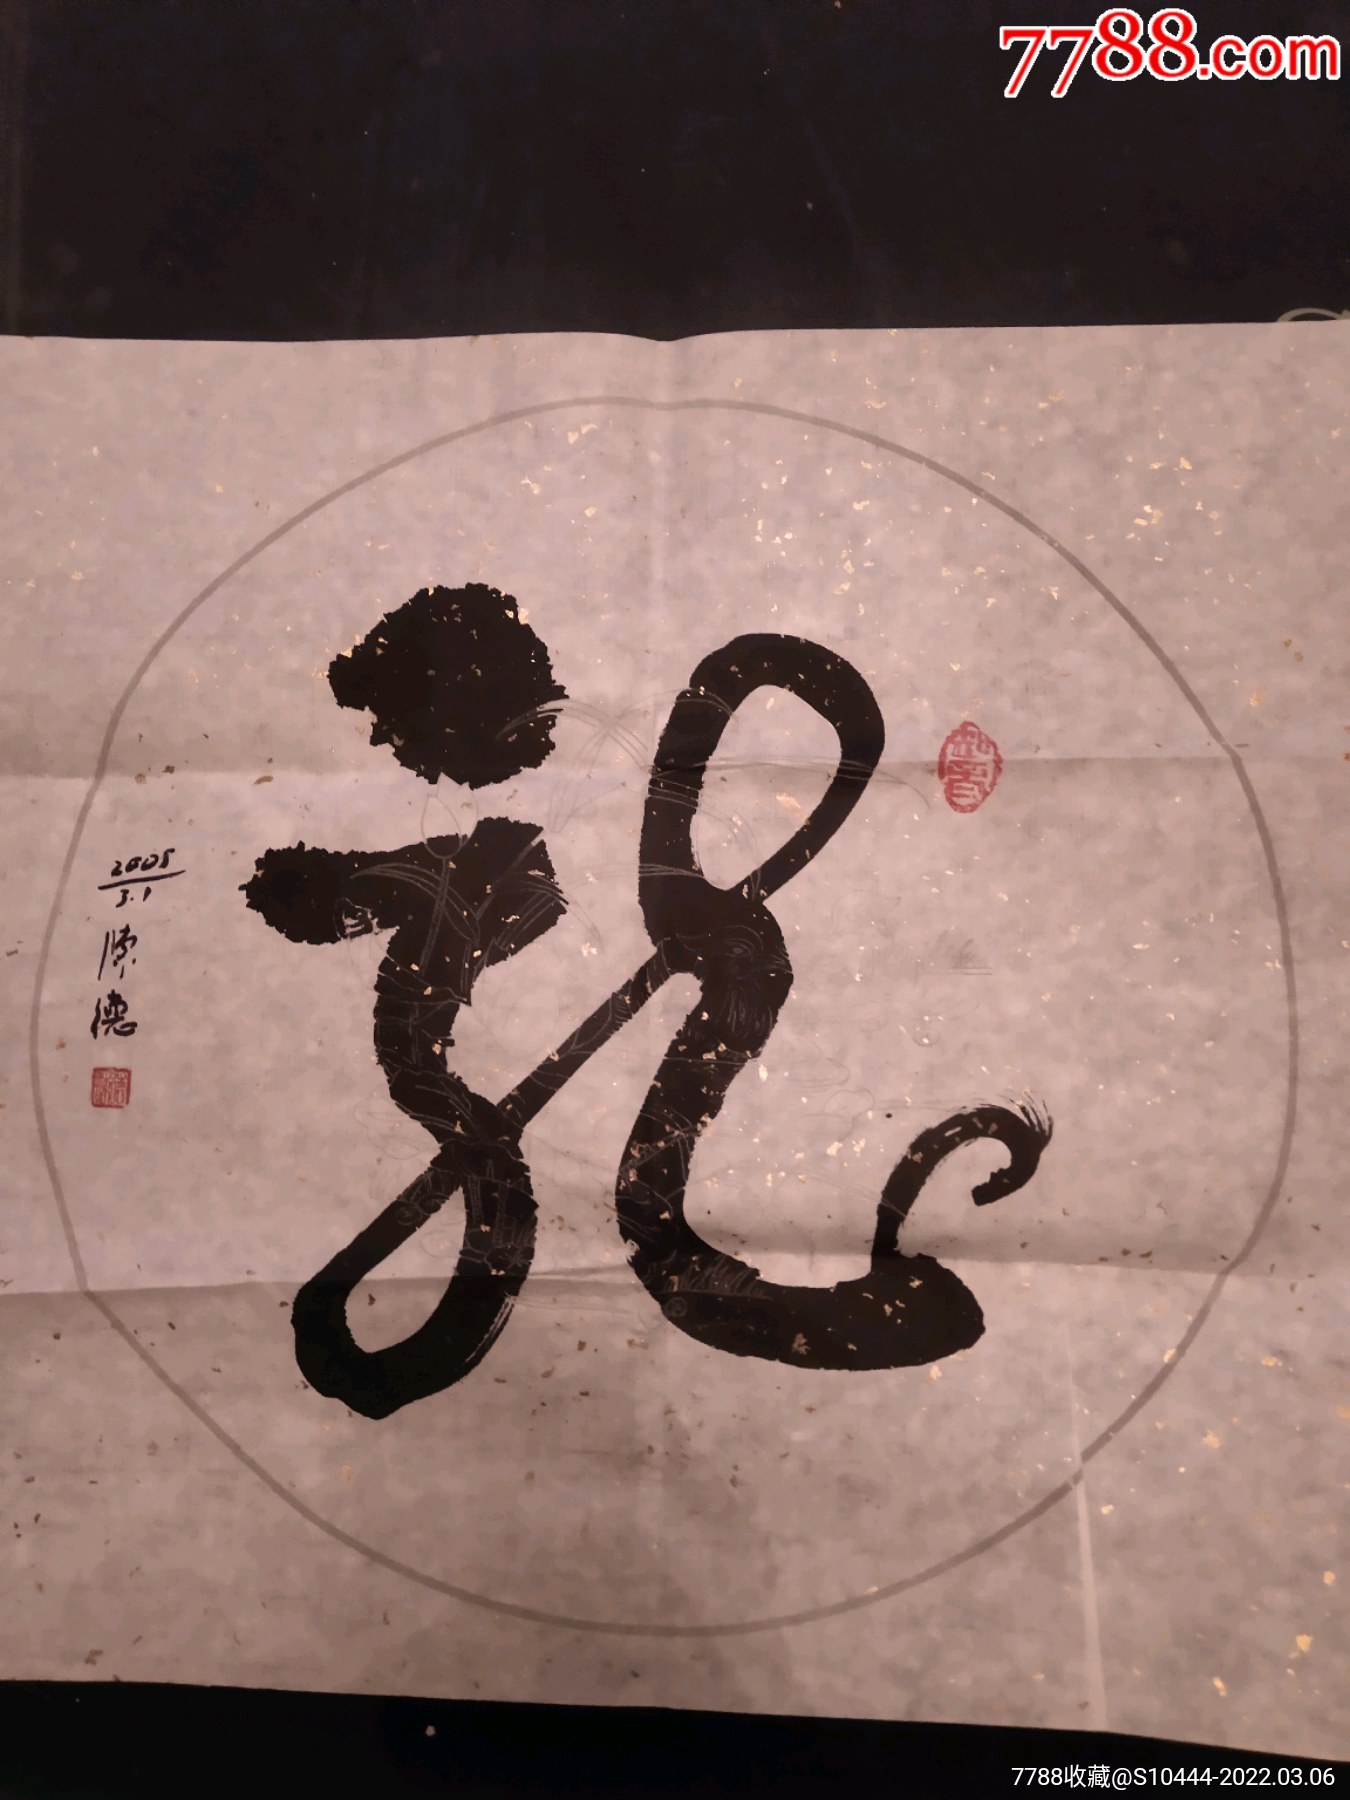 7788.com
龙
2005
3.1
陈
德
7788收藏@S10444-2022.03.06